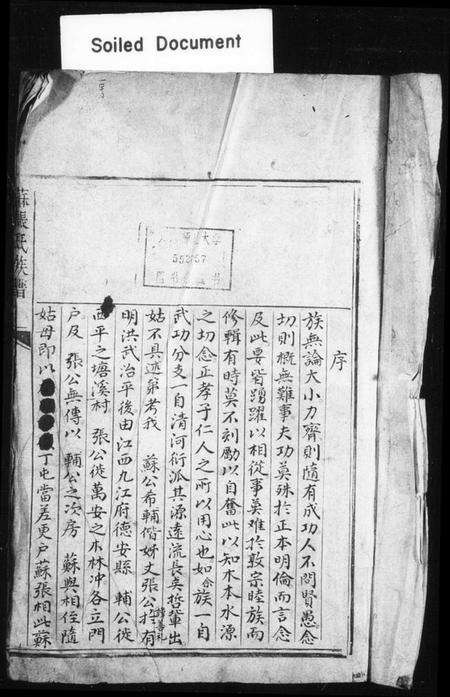 Soiled Document
序
族無論大小力齊則隨有成功人不問賢愚念
切則概無難事夫功莫殊於正本明倫而言念
及此要皆踴躍以相從事莫难於敦宗睦族而
修輯有時莫不刻勵以自奮此以知木本水源
之切念正孝子仁人之所以用心也如今族一自
武功分支一自清河衍派其源遠流長英哲輩出
姑不具述第考我 蘇公希輔偕姊丈張公於有
明洪武治平後由江西九江府德安縣 輔公徙
西平之塘溪村 張公徙萬安之木林冲各立門
户及 張公無傳以 輔公之次房 蘇與相侄隨
姑母即以
丁屯當差更户蘇張相此蘇
蘇張氏族譜
大学